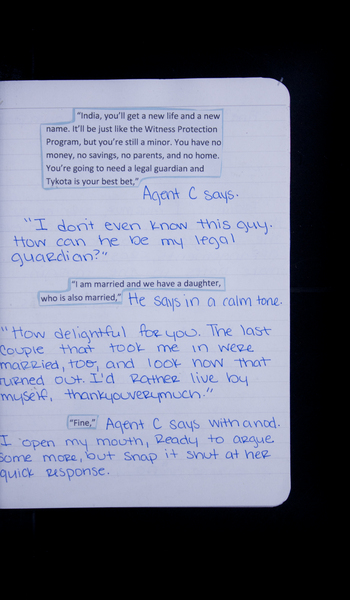 "India, you'll get a new life and a new
name. It'll be just like the Witness Protection
Program, but you're still a minor. You have no
money, no savings, no parents, and no home.
You're going to need a legal guardian and
Tykota is your best bet,"
Agent C says.
"I don't even know this guy.
How can he be my legal
guardian?"
"I am married and we have a daughter,
who is also married," He says in a calm tone.
"How delightful for you. The last
couple that took me in were
married, too, and look how that
turned out. I'd Rather live by
myself, thankyouverymuch."
"Fine," Agent C says with a nod.
I open my mouth, Ready to argue
some more, but snap it shut at her
quick response.